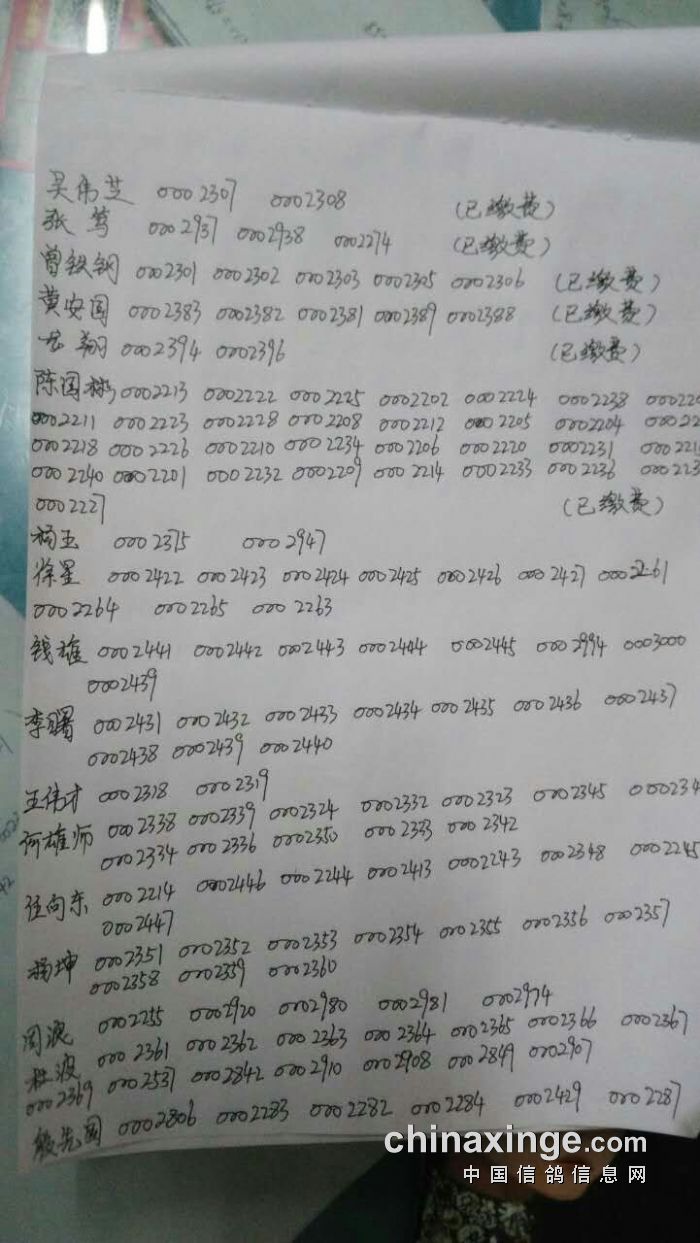 吴伟芝 0002307 0002308 (已缴费)
张莺 0002937 0002938 0002274 (已缴费)
曾铁钢 0002301 0002302 0002303 0002305 0002306 (已缴费)
黄安国 0002383 0002382 0002381 0002389 0002388 (已缴费)
翔 0002394 0002396 (已缴费)
陈国彬 0002213 0002222 0002225 0002202 0002224 0002238 000220
0002211 0002223 0002228 0002208 0002212 0002205 0002204 00022
0002218 0002226 0002210 0002234 0002206 0002220 0002231 000221
0002240 0002201 0002232 0002209 0002214 0002233 0002236 000223
0002227 (已缴费)
杨玉 0002375 0002947
徐星 0002422 0002423 0002424 0002425 0002426 0002427 0002261
0002264 0002265 0002263
钱雄 0002441 0002442 0002443 0002444 0002445 0002994 0003000
0002439
李曙 0002431 0002432 0002433 0002434 0002435 0002436 0002437
0002438 0002439 0002440
王伟才 0002318 0002319
何雄师 0002338 0002339 0002324 0002332 0002323 0002345 000234
0002334 0002336 0002350 0002333 0002342
任向东 0002214 0002446 0002244 0002413 0002243 0002348 0002245
0002447
杨坤 0002351 0002352 0002353 0002354 0002355 0002356 0002357
0002358 0002359 0002360
周波 0002255 0002920 0002980 0002981 0002974
杜波 0002361 0002362 0002363 0002364 0002365 0002366 0002367
0002369 0002537 0002842 0002910 0002908 0002849 0002907
殷先国 0002806 0002283 0002282 0002284 0002429 0002287
chinaxinge.com
中国信鸽信息网